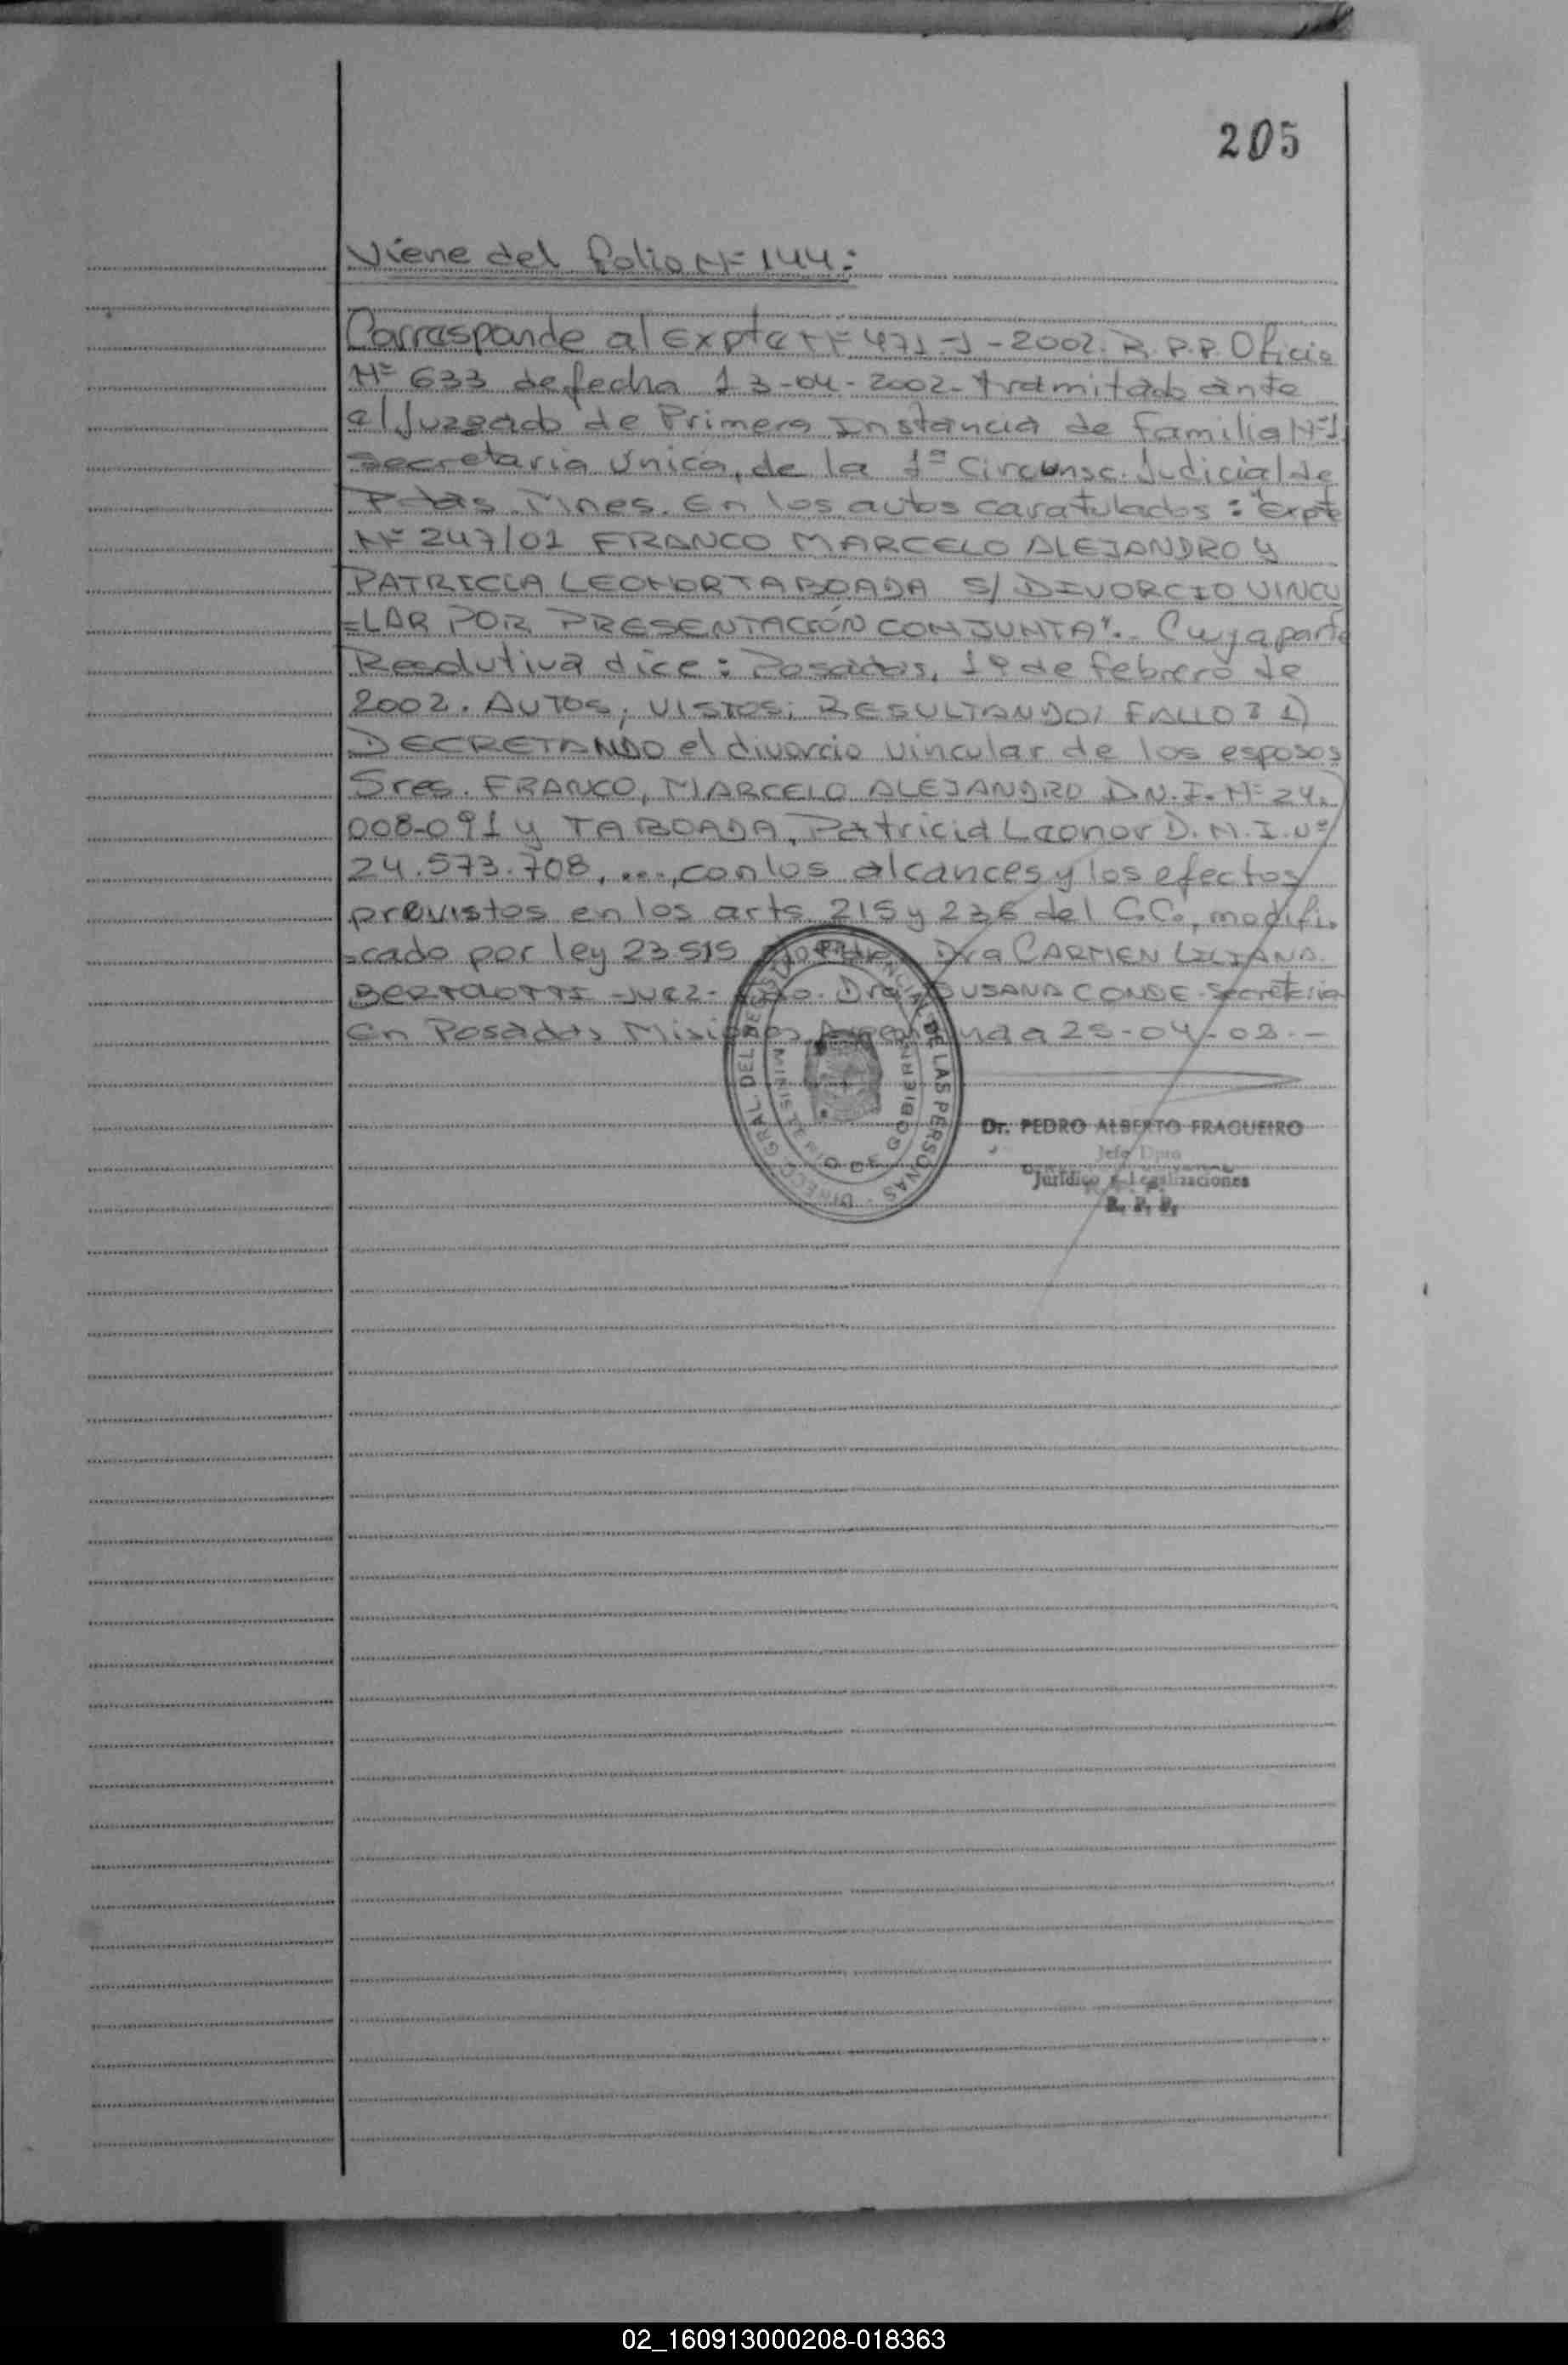 205
Viene del folio Nº 144:
Corresponde al Expte Nº 471-J-2002. R.P.P Oficio
Nº 633 de fecha 13-04-2002- tramitado ante
el Juzgado de Primera Instancia de Familia Nº1,
Secretaria Única, de la 1ª Circunsc. Judicial de
Pdas. Mnes. En los autos caratulados: "Expte
Nº 247/01 FRANCO MARCELO ALEJANDRO y
PATRICIA LEONOR TABOADA S/ DIVORCIO VINCU
=LAR POR PRESENTACIÓN CONJUNTA". Cuya parte
Resolutiva dice: Posadas, 1º de febrero de
2002. AUTOS; VISTOS; RESULTANDO; FALLO: 1)
DECRETANDO el divorcio vincular de los esposos
Sres. FRANCO, MARCELO ALEJANDRO D.N.I. Nº 24.
008-091 y TABOADA, Patricia Leonor D.N.I. Nº
24.573.708, ..., con los alcances y los efectos
previstos en los arts. 215 y 236 del C.C., modifi.
=cado por ley 23.515 Dra CARMEN LILIANA
BERTOLOTTI -Juez- Dra SUSANA CONDE-Secretaria
En Posadas Misiones Argentina a 25-04-02.-
DIRECC. GRAL. DEL REGISTRO PROVINCIAL DE LAS PERSONAS
MINISTERIO DE GOBIERNO
Dr. PEDRO ALBERTO FRAGUEIRO
Jefe Dpto
Jurídico y Legalizaciones
R. P. P.
02_160913000208-018363